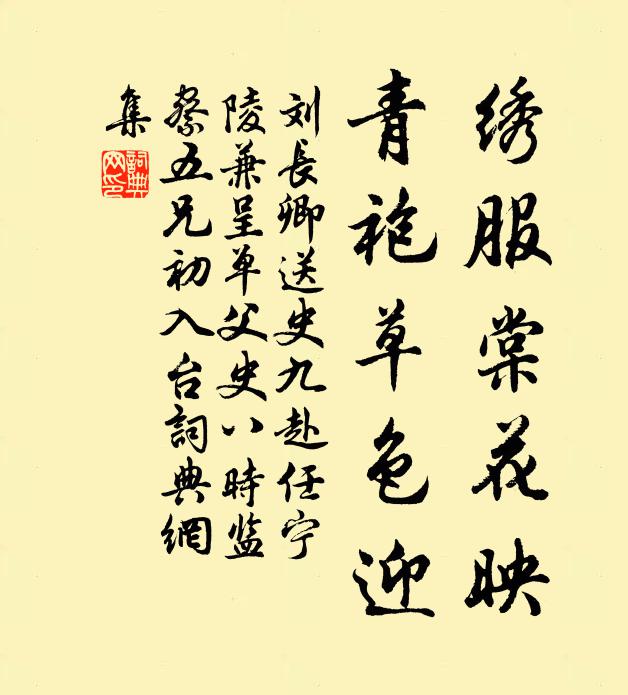 绣服棠花映
青袍草色迎
刘長卿送史九赴任宁
陵兼呈单父史八時监
察五兄初入台詞典網
集
詞典
网印